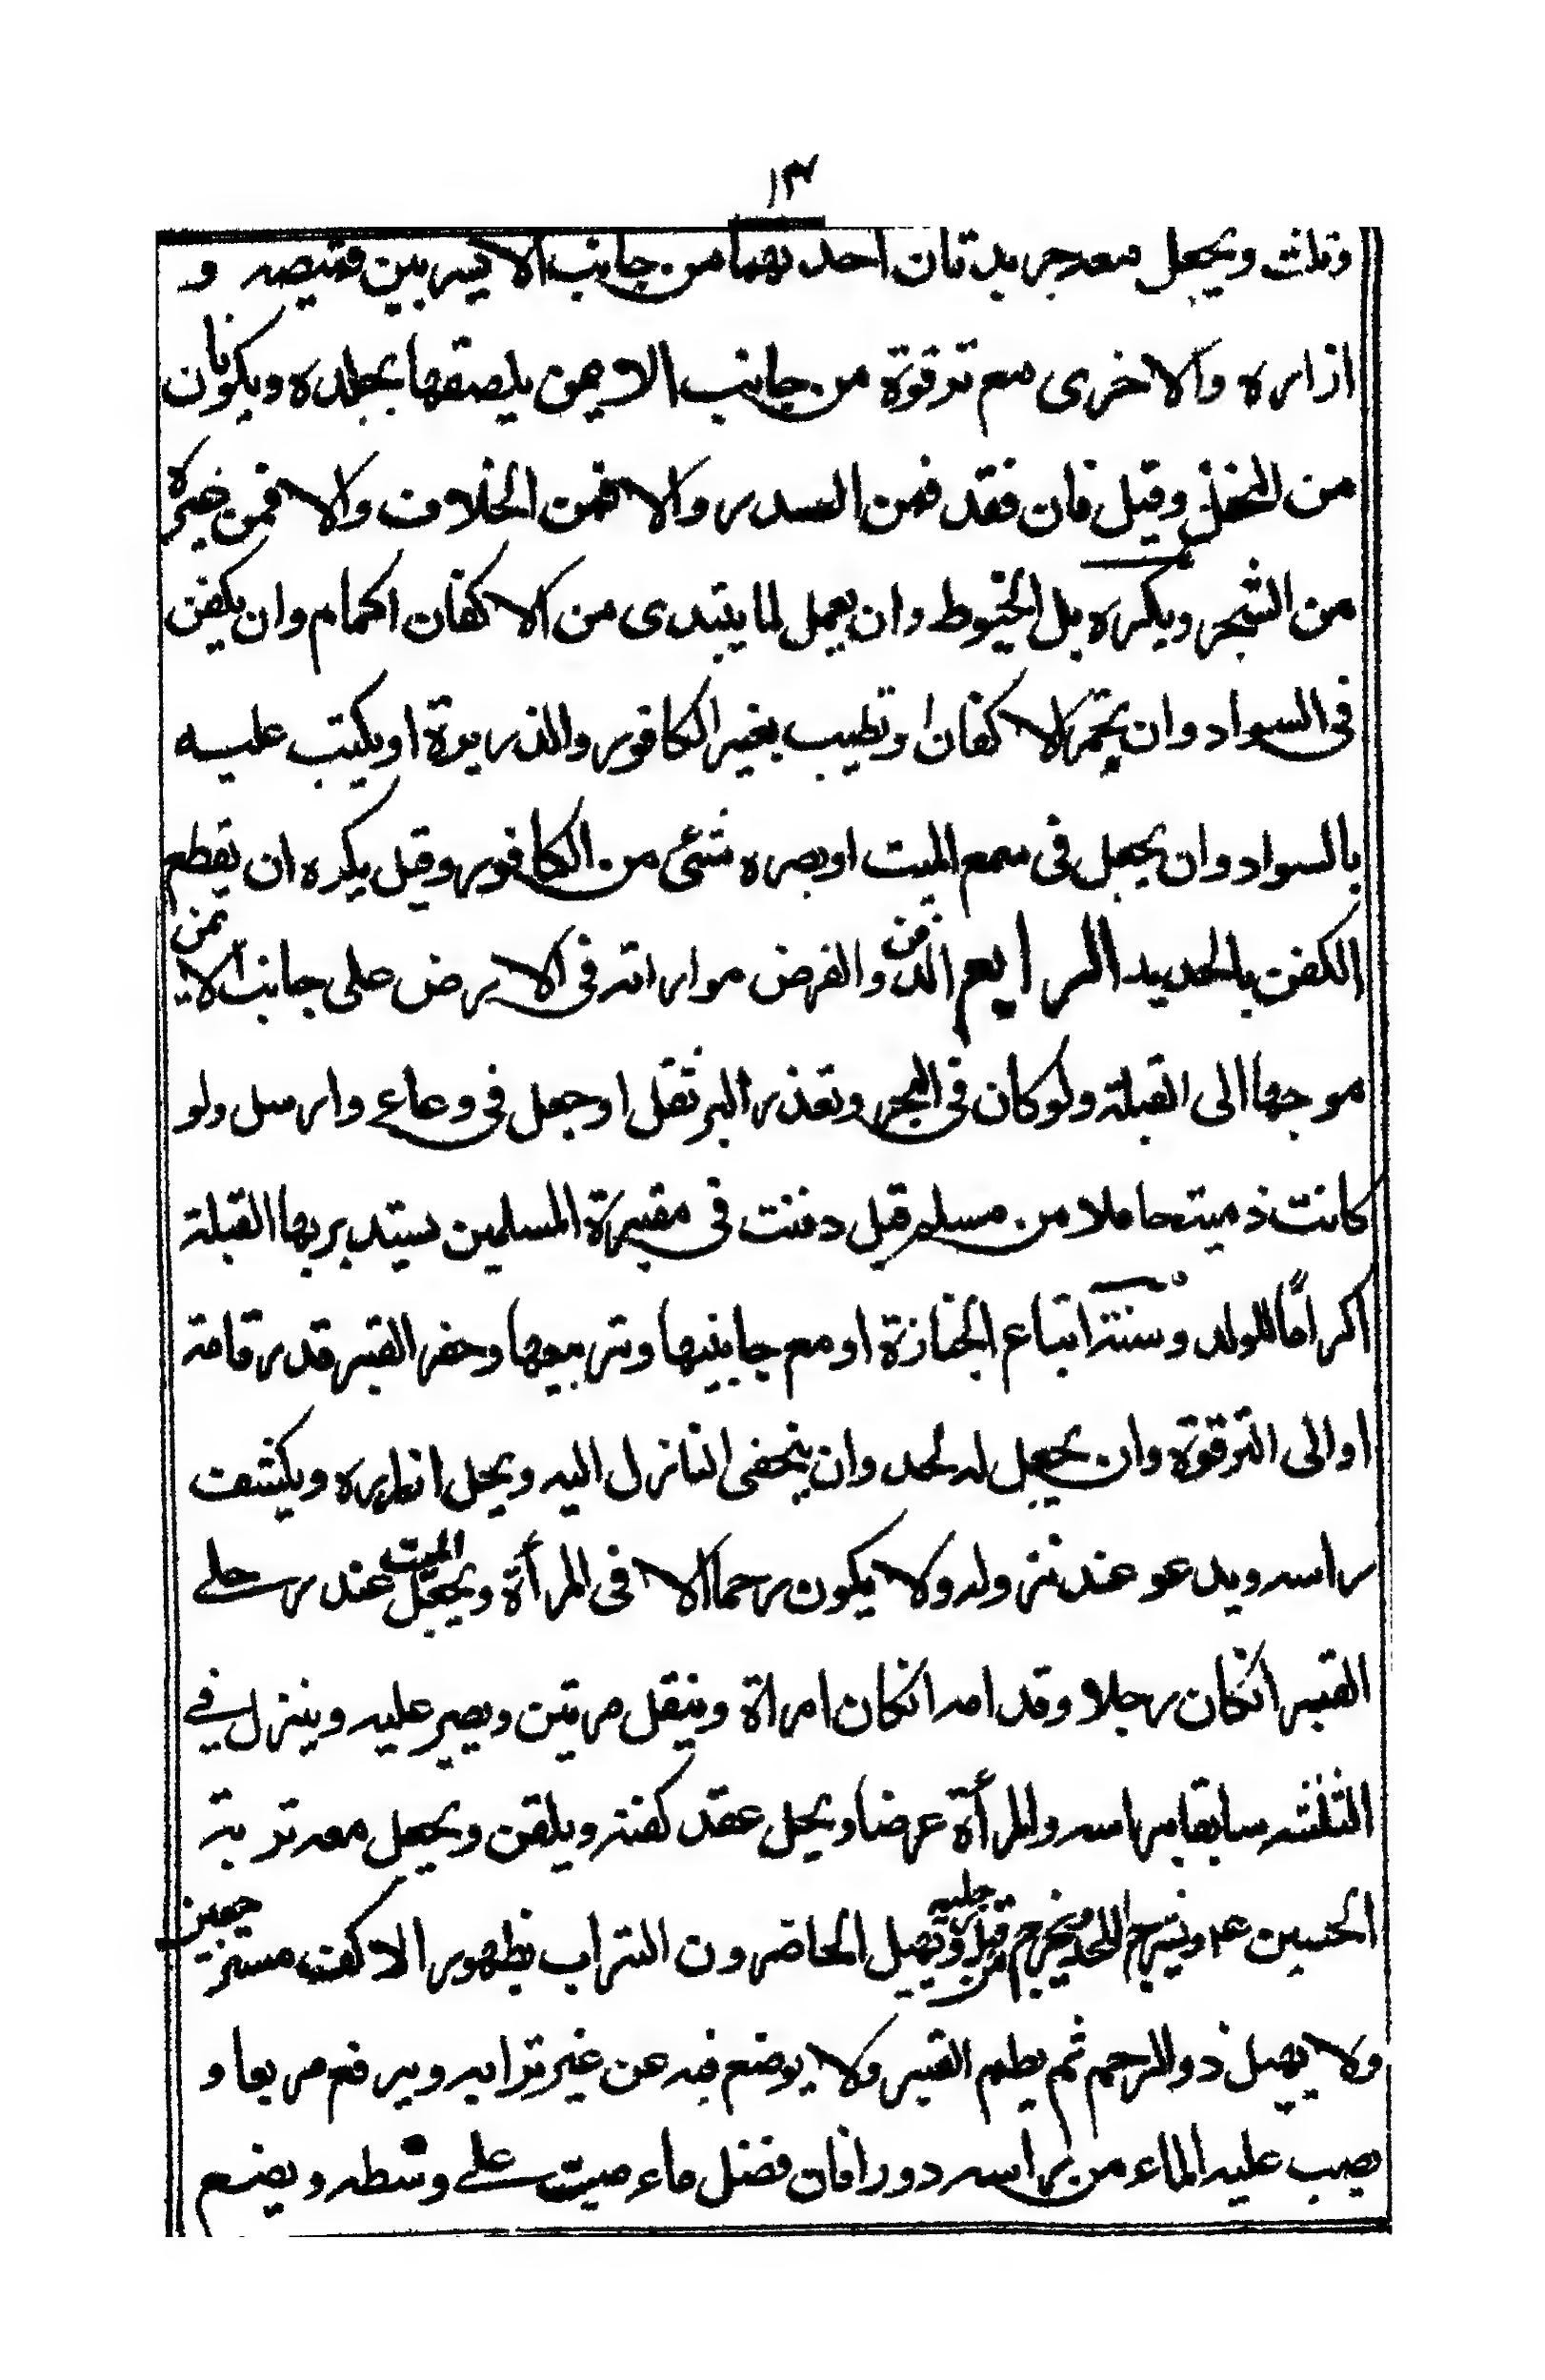 ١٣
وثلث ويجعل معه جريدتان احدیهما من جانب الايسر بين قميصه و
ازاره والاخرى مع ترقوة من جانب الايمن يلصقها بجلده ويكونان
من النخل وقيل فان فقد فمن السدر والا فمن الخلاف والا فمن غيره
من الشجر ويكره بل الخيوط وان يعمل لما يبتدى من الاكفان اكمام وان يكفن
فى السواد وان يجمر الاكفان او تطيب بغير الكافور والذريرة او يكتب عليه
بالسواد وان يجعل فى سمع الميت او بصره شئ من الكافور وقيل يكره ان يقطع
الكفن بالحديد الرابع الدفن والفرض مواراته فى الارض على جانب الايمن
موجها الى القبلة ولو كان فى البحر وتعذر البر ثقل او جعل فى وعاء وارسل ولو
كانت ذمية حاملا من مسلم قيل دفنت فى مقبرة المسلمين يستدبر بها القبلة
اكراماً للولد وسننه اتباع الجنازة او مع جانبيها وتربيعها وحفر القبر قدر قامة
او الى الترقوة وان يجعل له لحد وان يتحفى النازل اليه ويحل ازراره ويكشف
راسه ويدعو عند نزوله ولا يكون رحما الا فى المرأة ويجعل الميت عند رجلى
القبر انكان رجلا وقدامه انكان امراة وينقل مرتين ويصبر عليه وينزل فى
الثلثة سابقا براسه والمرأة عرضا ويحل عقد كفنه ويلقن ويجعل معه تربة
الحسين ع ويشرج اللحد ويخرج من قبل رجليه ويهيل الحاضرون التراب بظهور الاكف مسترجعين
ولا يهيل ذو الرحم ثم يطم القبر ولا يوضع فيه عن غير ترابه ويرفع مربعا و
يصب عليه الماء من راسه دورا فان فضل ماء صبت على وسطه ويضع